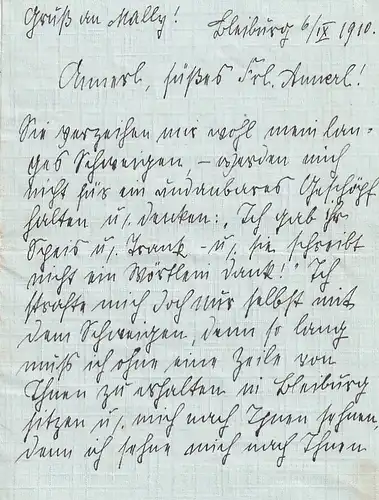 Gruß an Mally!
Bleiburg 6/IX 1910.
Annerl, süßes Frl. Annerl!
Sie verzeihen mir wohl mein lan=
ges Schweigen, – werden mich
nicht für ein undankbares Geschöpf
halten u. denken: „Ich gab ihr
Speis u. Trank – u. sie schreibt
nicht ein Wörtlein Dank!" Ich
strafte mich doch nur selbst mit
dem Schweigen, denn so lang
muss ich ohne eine Zeile von
Ihnen zu erhalten in Bleiburg
sitzen u. mich nach Ihnen sehnen,
denn ich sehne mich nach Ihnen